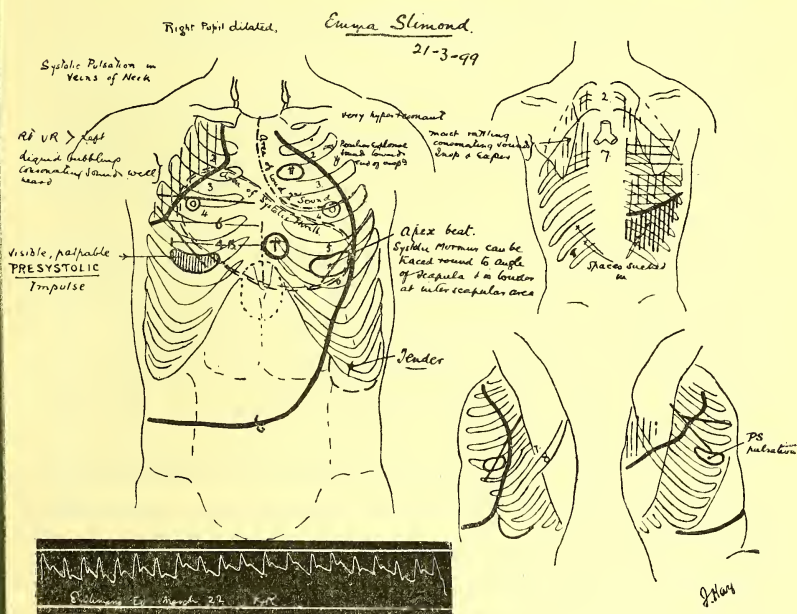 Right Pupil dilated,
Emma Slimond.
21-3-99
Systolic Pulsation in
Veins of Neck
Rt VR > Left
Liquid bubbling
Consonating Sounds well
heard
very hyperresonant
Peculiar Explosive
Sound towards
end of insp
Area of 2nd Sound
Area of Systolic Thrill
2
2
3
3
4
4
5
6
visible, palpable
PRESYSTOLIC
Impulse
apex beat.
Systolic Murmur can be
traced round to angle
of scapula & is louder
at inter scapular area
Tender
moist rattling
consonating sound
Insp & Exper
2
7
Spaces sucked
in
PS
pulsation
March 22
J Hay